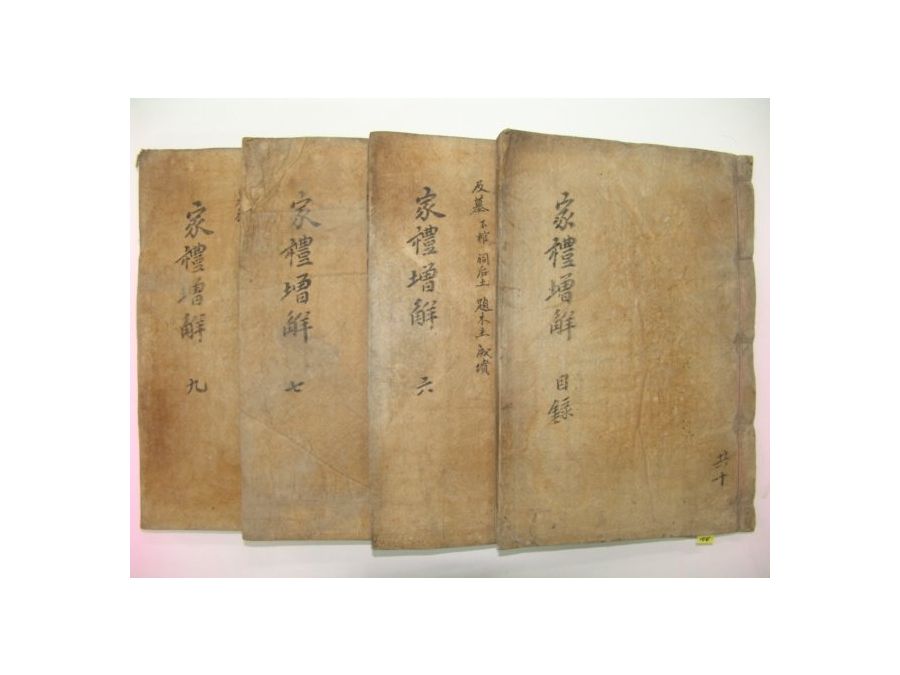 家禮增解 目錄
共十
反墓 下棺 祠后土 題木主 成墳
家禮增解 六
家禮增解 七
家禮增解 九